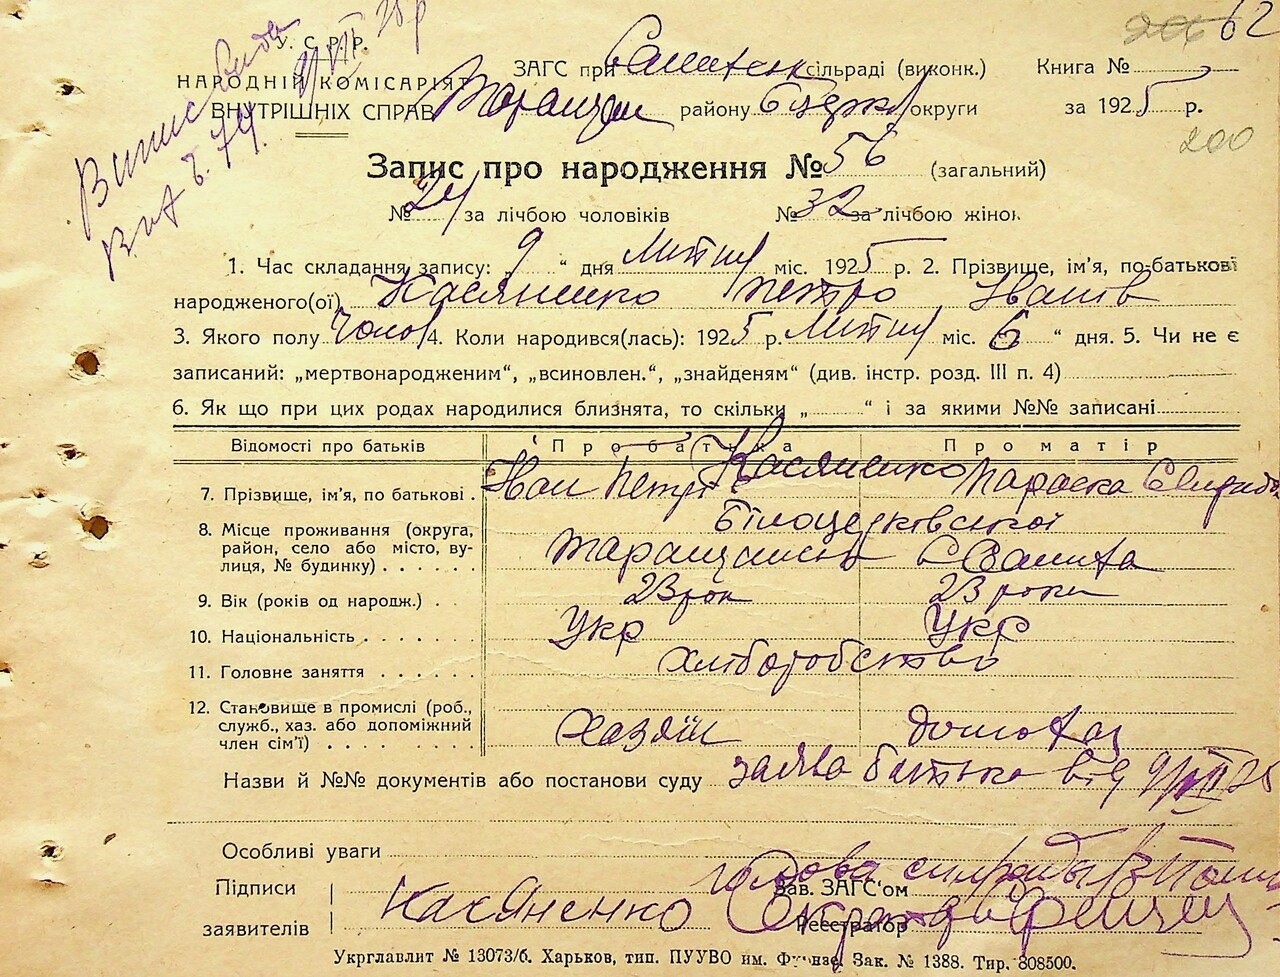 62
У. С. Р. Р.
НАРОДНІЙ КОМІСАРІЯТ
ВНУТРІШНІХ СПРАВ
ЗАГС при сільраді (виконк.) Книга №
району округи за 1925 р.
200
Запис про народження № 56 (загальний)
№ 24 за лічбою чоловіків № 32 за лічбою жінок
1. Час складання запису: „ 9 “ дня Липня міс. 1925 р. 2. Прізвище, ім'я, по-батькові
народженого(ої) Касяненко Петро Іванів
3. Якого полу Чолов 4. Коли народився(лась): 1925 р. Липня міс. 6 “ дня. 5. Чи не є
записаний: „мертвонародженим“, „всиновлен.“, „знайденям“ (див. інстр. розд. III п. 4)
6. Як що при цих родах народилися близнята, то скільки „ “ і за якими №№ записані
Відомості про батьків Про батька Про матір
7. Прізвище, ім'я, по батькові . Іван Петрів Касяненко Параска
8. Місце проживання (округа, район, село або місто, вулиця, № будинку) . . . . . . Білоцерковської
9. Вік (років од народж.) . . 23 рок 23 роки
10. Національність . . . . . . . Укр Укр
11. Головне заняття . . . . . . Хліборобство
12. Становище в промислі (роб.,
служб., хаз. або допоміжний
член сім'ї) . . . . . . . . . Хазяїн домохаз
Назви й №№ документів або постанови суду заява батька від 9/VII 25
Особливі уваги
Підписи голова сільради
Зав. ЗАГС'ом
заявителів Касяненко Реєстратор
Укрглавліт № 13073/б. Харьков, тип. ПУУВО им. Фрунзе. Зак. № 1388. Тир. 808500.